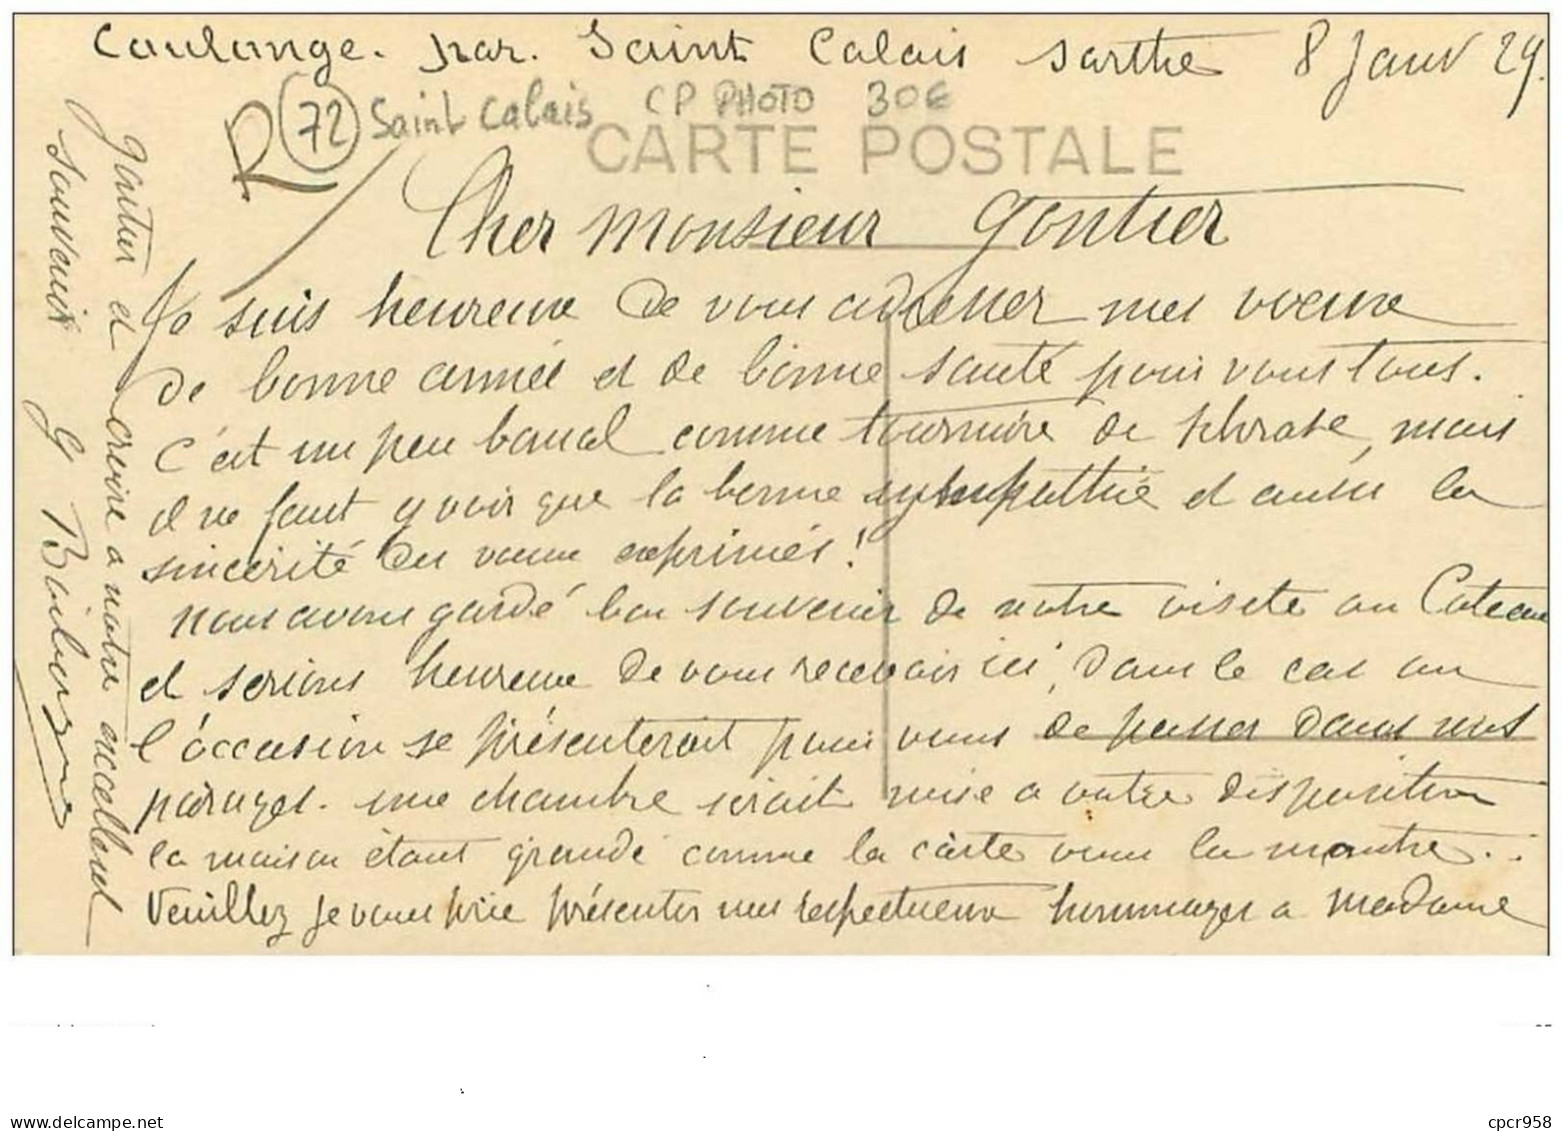 Coulonge. par. Saint Calais Sarthe 8 Janv 29.
R 72 Saint Calais CP PHOTO 30€
CARTE POSTALE
Cher Monsieur Gontier
Je suis heureux de vous adresser mes voeux
de bonne année et de bonne santé pour vous tous.
C'est un peu banal comme tournure de phrase, mais
il ne faut y voir que la bonne sympathie et aussi la
sincérité des voeux exprimés!
nous avons gardé bon souvenir de notre visite au Cateau
et serions heureux de vous recevoir ici, dans le cas ou
l'occasion se présenterait pour vous de passer dans nos
parages. une chambre serait mise a votre disposition
la maison étant grande comme la carte vous la montre..
Veuillez je vous prie présenter mes respectueux hommages a Madame
Gontier et croire a notre excellent
souvenir G
delcampe.net
cpcr958